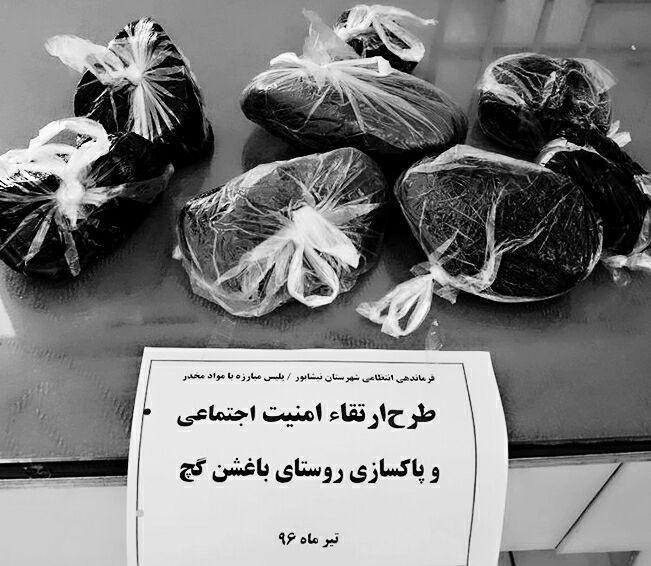 فرماندهی انتظامی شهرستان نیشابور / پلیس مبارزه با مواد مخدر
طرح ارتقاء امنیت اجتماعی
و پاکسازی روستای باغشن گچ
تیر ماه ۹۶